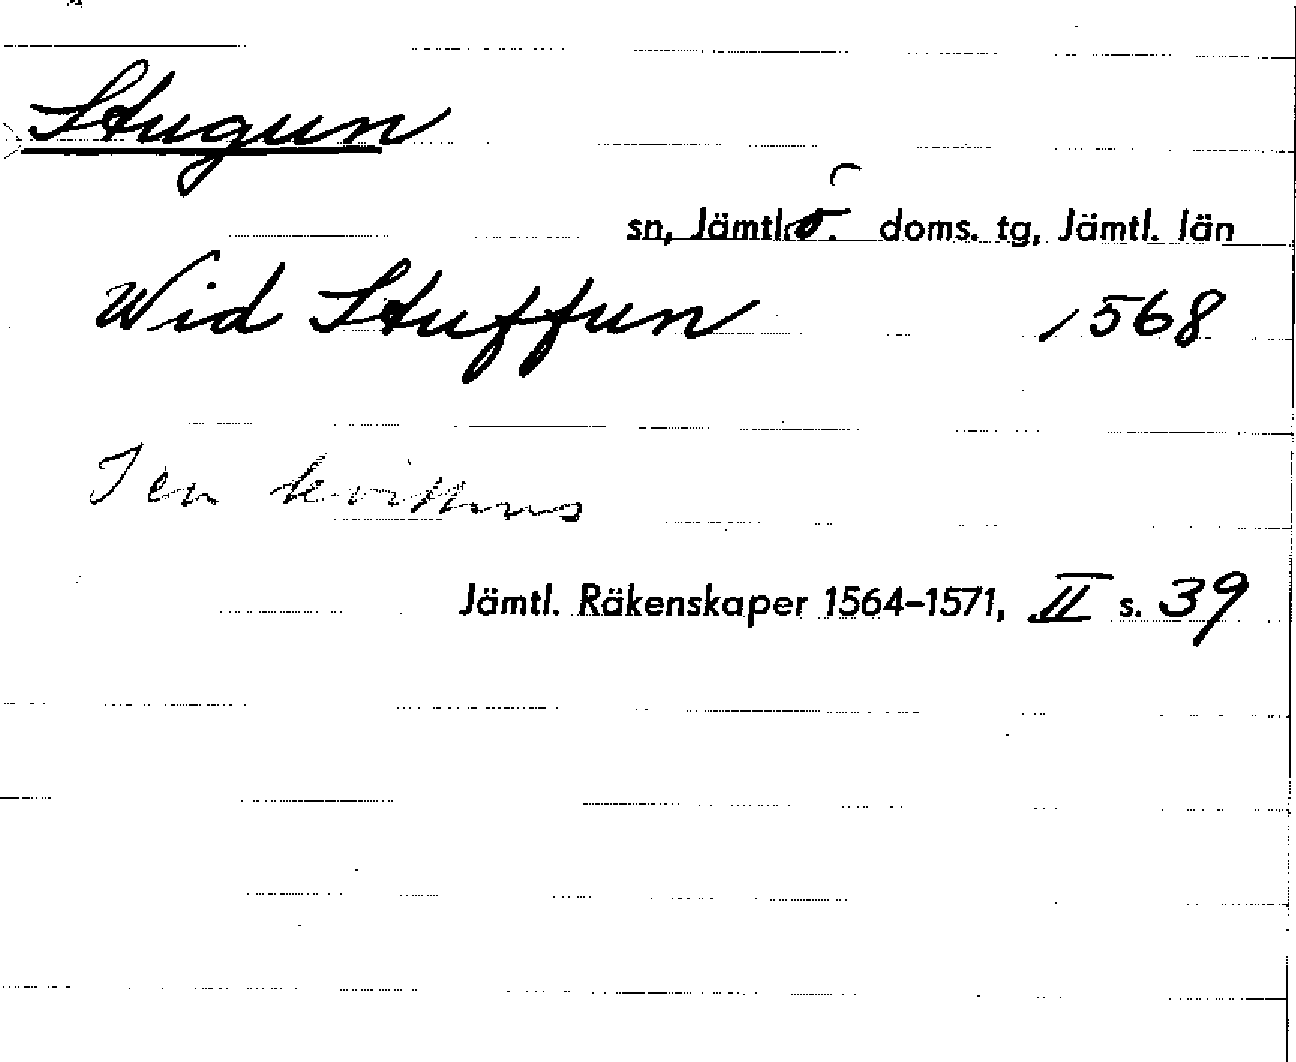 Stugun
sn, Jämtl. ö. doms. tg, Jämtl. län
Wid Stuffun 1568
I en kvittens
Jämtl. Räkenskaper 1564–1571, II s. 39